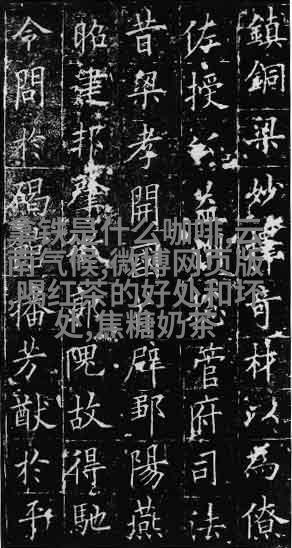 鎮銅梁妙筆奇材以為僚
佐授益管府司法
昔梁孝開國辟鄒陽燕
昭建邦肇郭隗故得馳
令問於碣播芳猷於平
拿铁是什么咖啡,云
南气候,微博网页版
,喝红茶的好处和坏
处,焦糖奶茶